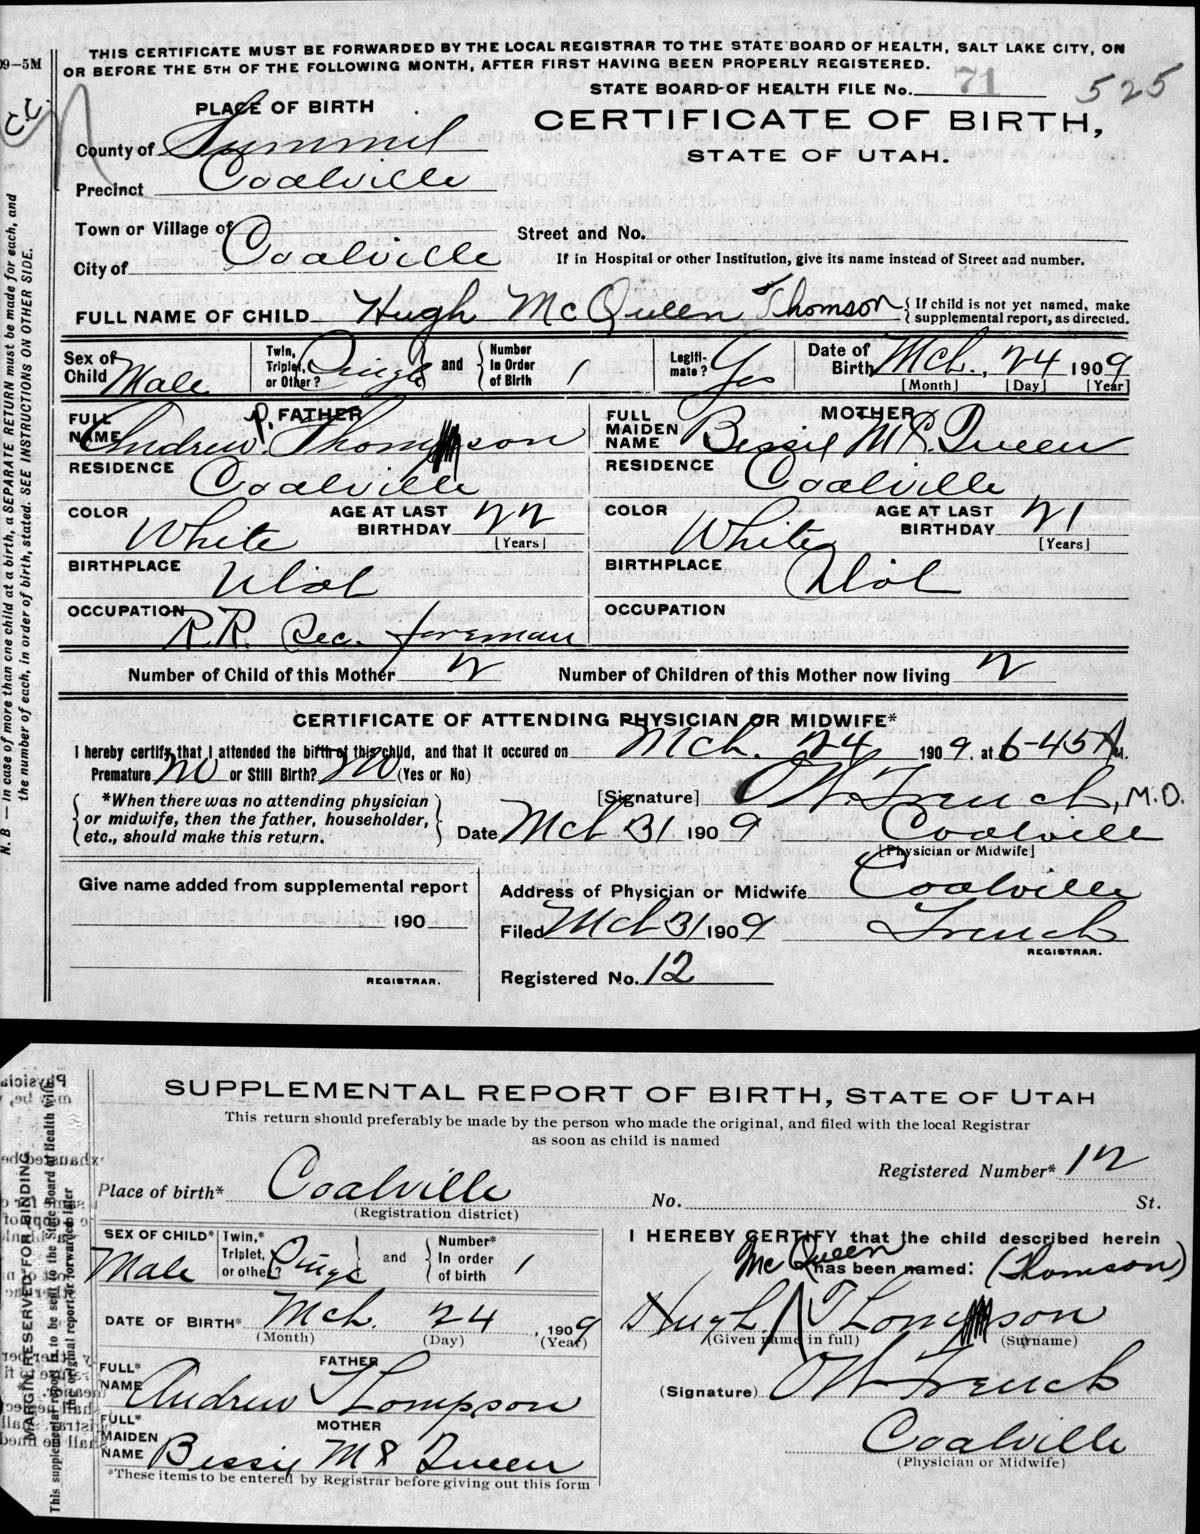 THIS CERTIFICATE MUST BE FORWARDED BY THE LOCAL REGISTRAR TO THE STATE BOARD OF HEALTH, SALT LAKE CITY, ON
OR BEFORE THE 5TH OF THE FOLLOWING MONTH, AFTER FIRST HAVING BEEN PROPERLY REGISTERED.
09–5M
STATE BOARD OF HEALTH FILE No. 71 525
PLACE OF BIRTH
CERTIFICATE OF BIRTH,
STATE OF UTAH.
County of Summit
Precinct Coalville
Town or Village of
Street and No.
City of Coalville
If in Hospital or other Institution, give its name instead of Street and number.
FULL NAME OF CHILD Hugh McQueen Thomson { If child is not yet named, make supplemental report, as directed.
Sex of Child Male Twin, Triplet, or Other? Single and Number In Order of Birth 1 Legitimate? Yes Date of Birth Mch. 24 1909
[Month] [Day] [Year]
FATHER MOTHER
FULL NAME Andrew P. Thomson FULL MAIDEN NAME Bessie Mc Queen
RESIDENCE Coalville RESIDENCE Coalville
COLOR White AGE AT LAST BIRTHDAY 22 [Years] COLOR White AGE AT LAST BIRTHDAY 21 [Years]
BIRTHPLACE Utah BIRTHPLACE Utah
OCCUPATION R.R. Sec. foreman OCCUPATION
Number of Child of this Mother 2 Number of Children of this Mother now living 2
CERTIFICATE OF ATTENDING PHYSICIAN OR MIDWIFE*
I hereby certify that I attended the birth of this child, and that it occured on Mch. 24 1909. at 6-45 A M.
Premature No or Still Birth? No (Yes or No)
[Signature] French, M.D.
*When there was no attending physician
or midwife, then the father, householder,
etc., should make this return.
Date Mch 31 1909 Coalville
[Physician or Midwife]
Give name added from supplemental report
190
REGISTRAR.
Address of Physician or Midwife Coalville
Filed Mch 31 1909 French
REGISTRAR.
Registered No. 12
N. B. — In case of more than one child at a birth, a SEPARATE RETURN must be made for each, and
the number of each, in order of birth, stated. SEE INSTRUCTIONS ON OTHER SIDE.
SUPPLEMENTAL REPORT OF BIRTH, STATE OF UTAH
This return should preferably be made by the person who made the original, and filed with the local Registrar
as soon as child is named
Registered Number* 12
Place of birth* Coalville No. St.
(Registration district)
SEX OF CHILD* Male Twin,* Triplet, or other? Single and Number* In order of birth 1
DATE OF BIRTH* Mch. 24, 1909
(Month) (Day) (Year)
FATHER
FULL* NAME Andrew Thompson
MOTHER
FULL* MAIDEN NAME Bessie Mc Queen
*These items to be entered by Registrar before giving out this form
I HEREBY CERTIFY that the child described herein
has been named: McQueen (Thomson)
Hugh Thomson
(Given name in full) (Surname)
(Signature) French
Coalville
(Physician or Midwife)
MARGIN RESERVED FOR BINDING
This supplemental report is to be sent to the State Board of Health with
the original report or forwarded later